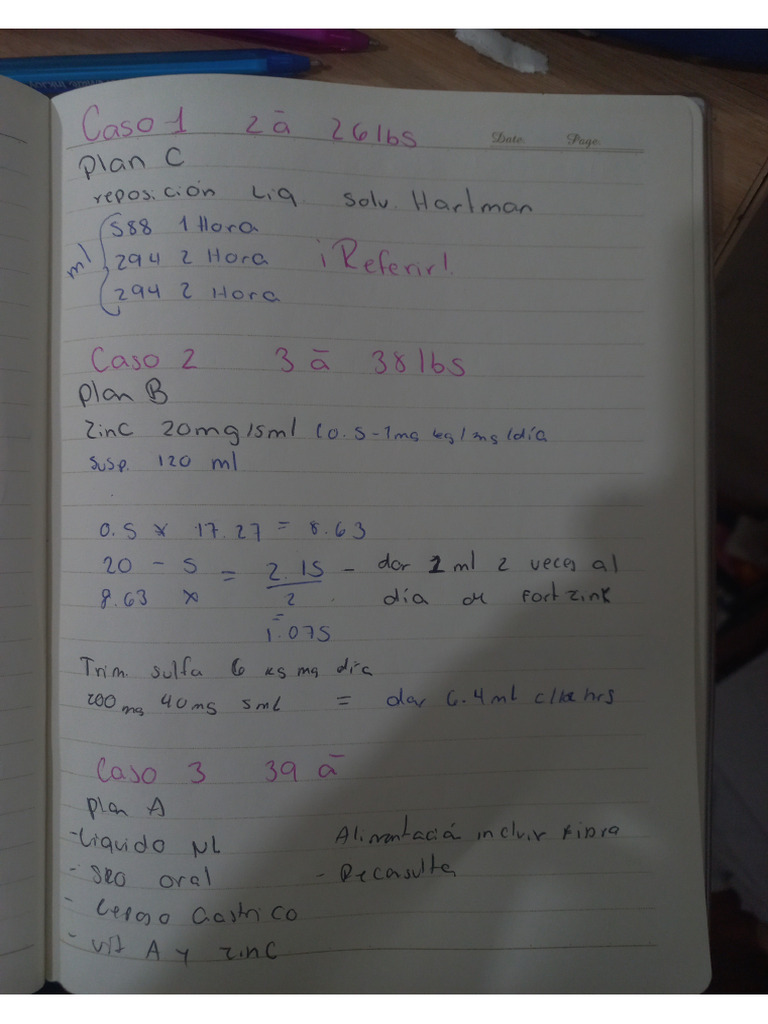 Date. Page:
Caso 1 2ā 26 lbs
Plan C
reposición Liq. solu. Hartman
ml
588 1 Hora
294 2 Hora ¡Referir!
294 2 Hora
Caso 2 3 ā 38 lbs
Plan B
Zinc 20mg/5ml (0.5-1mg kg/mg/día
susp. 120 ml
0.5 * 17.27 = 8.63
20 - 5 = 2.15 - dar 1 ml 2 veces al
8.63 x 2 día de Fort zink
=
1.075
Trim. sulfa 6 kg mg día
200mg 40mg 5ml = dar 6.4ml c/ hrs
Caso 3 39 ā
Plan A
- Liquido NL Alimentació incluir fibra
- SRO oral - Reconsulta
- Reposo Gastrico
- Vit A y zinc